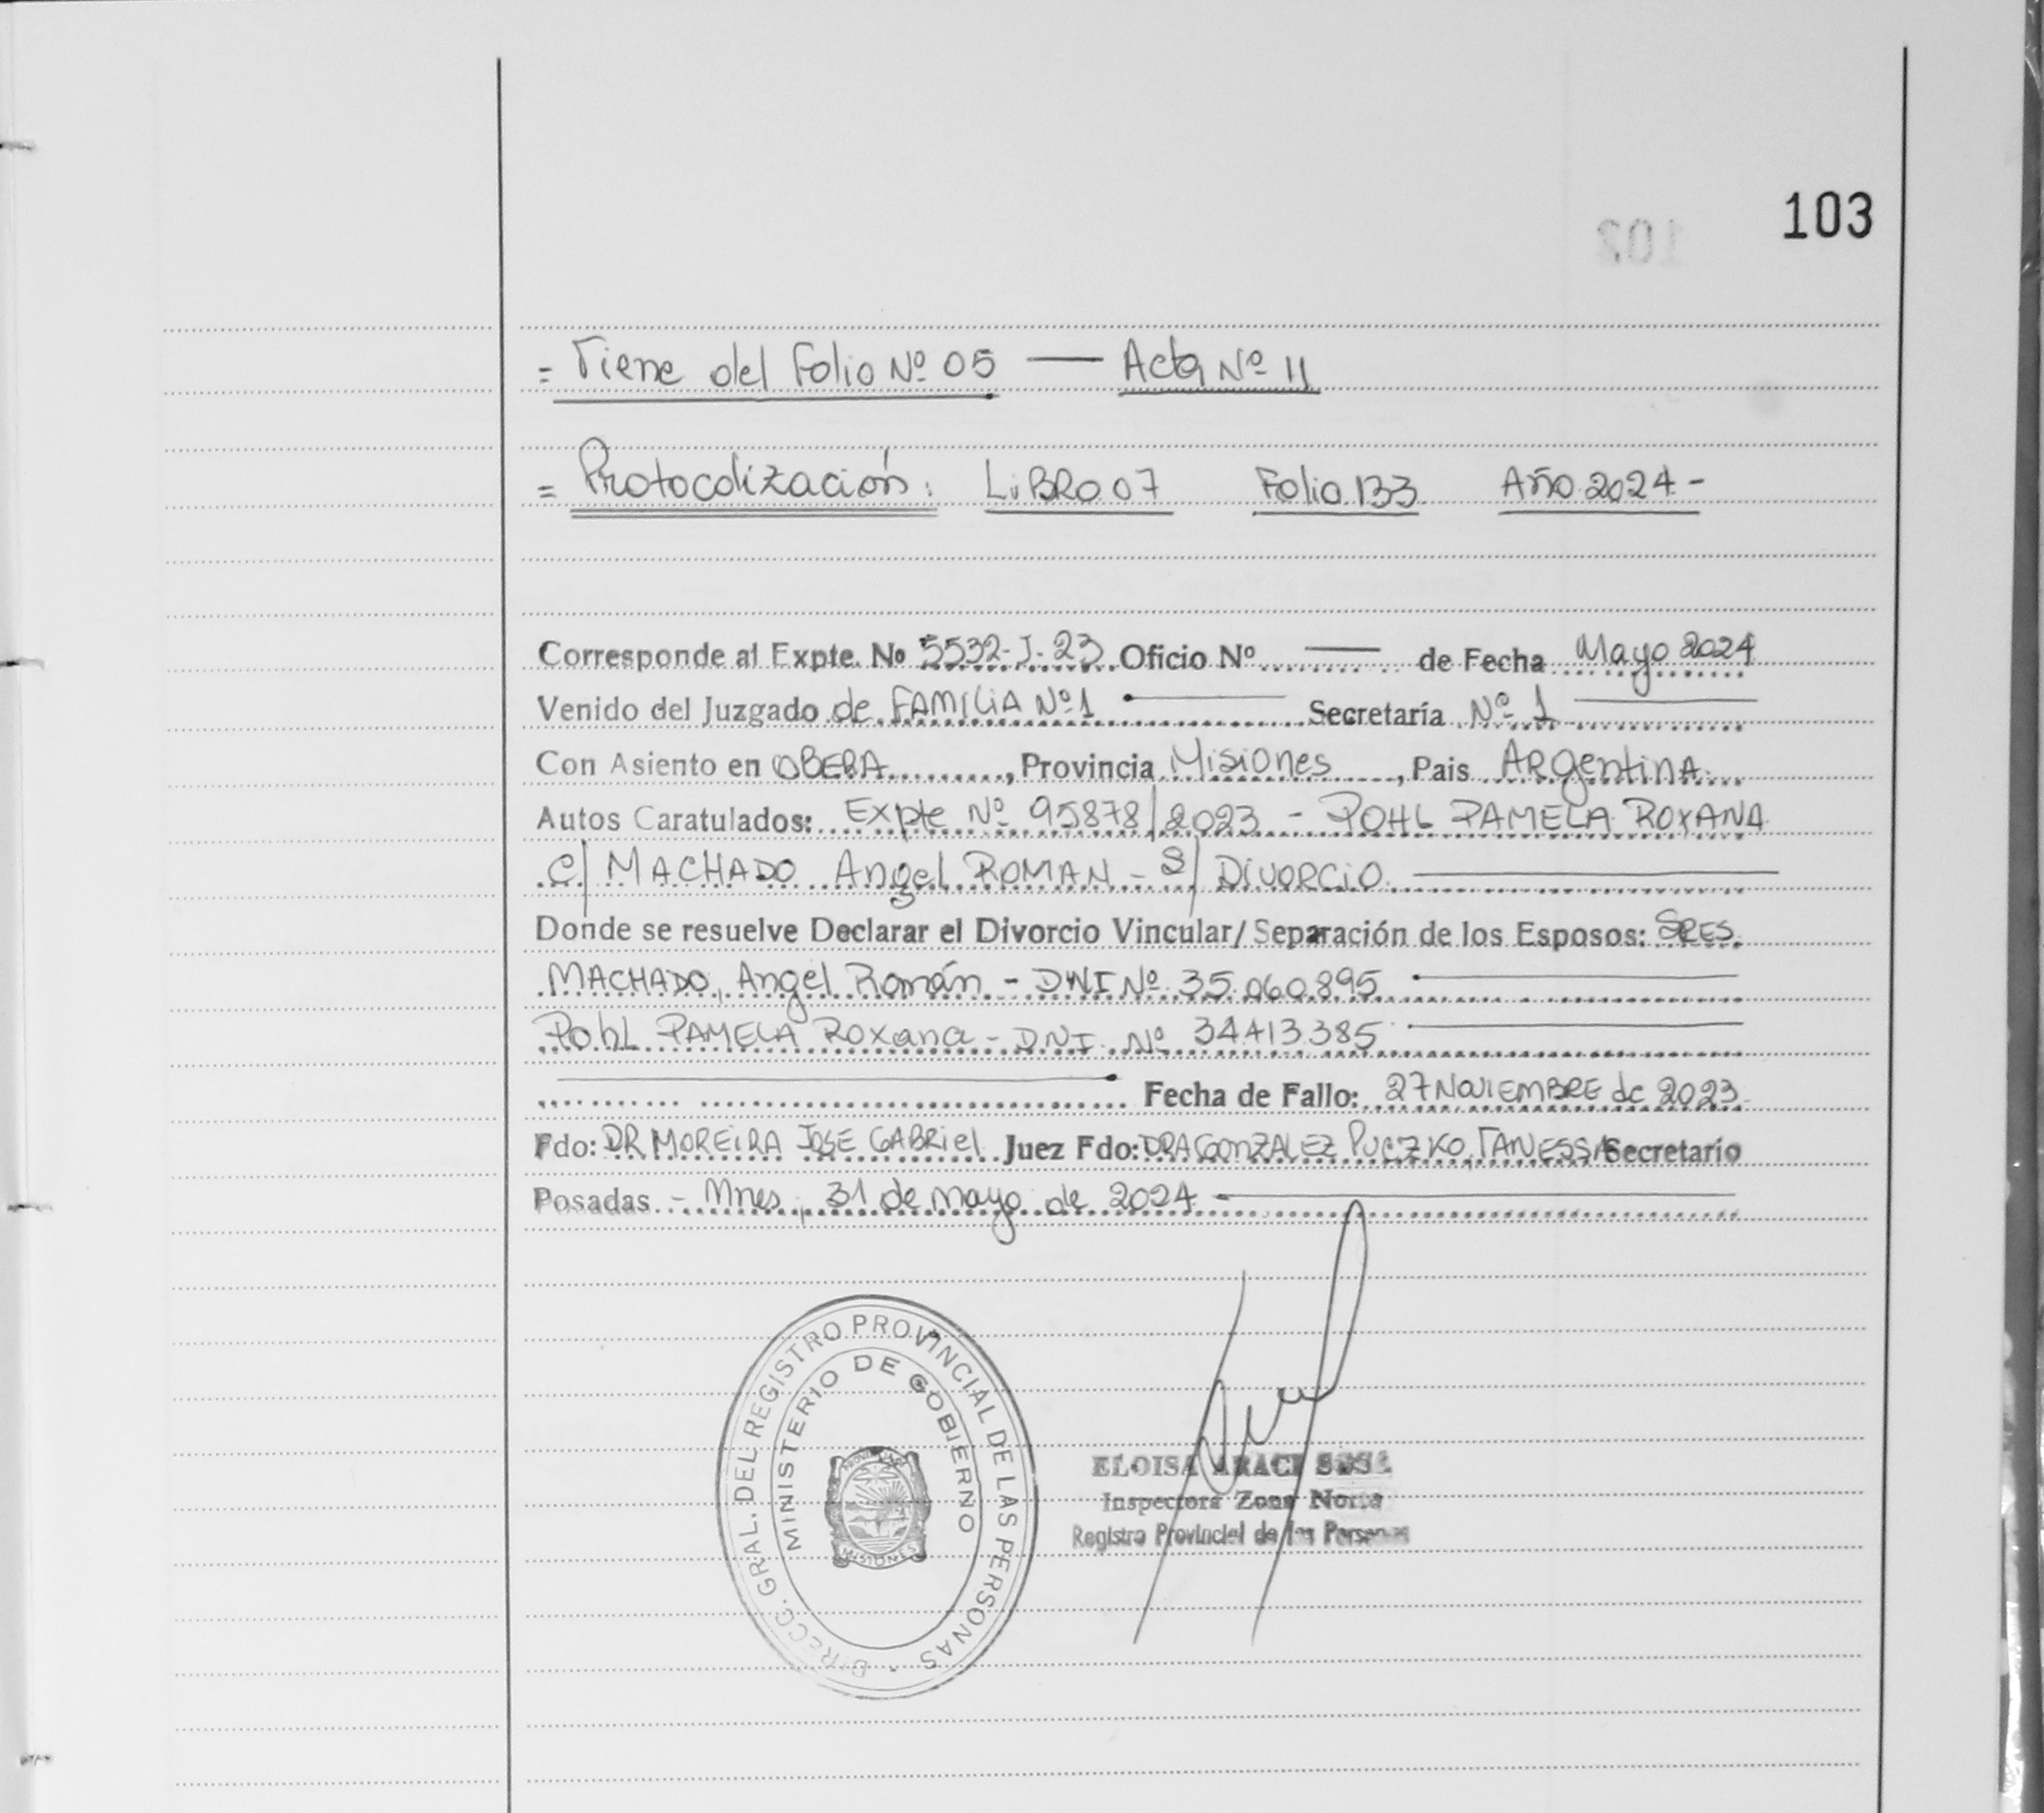 103
= Viene del Folio Nº 05 — Acta Nº 11
= Protocolización: LiBRO 07 Folio 133 Año 2024 -
Corresponde al Expte. No 5532-J-23 Oficio Nº — de Fecha Mayo 2024
Venido del Juzgado de FAMILIA Nº1 — Secretaría Nº 1 —
Con Asiento en OBERA, Provincia Misiones, Pais ARgentinA
Autos Caratulados: Expte Nº 95878/2023 - POHL PAMELA ROXANA
C/ MACHADO Angel ROMAN - S/ DIVORCIO. —
Donde se resuelve Declarar el Divorcio Vincular/ Separación de los Esposos: SRES.
MACHADO, Angel Román - DNI Nº 35.060.895 —
PohL PAMELA Roxana - DNI. Nº 34413385 —
— Fecha de Fallo: 27 NOVIEMBRE de 2023
Fdo: DR MOREIRA JOSE GABRiel Juez Fdo: DRA GONZALEZ PUCZKO, VANESSA Secretario
Posadas - Mnes, 31 de mayo de 2024 —
DIRECC. GRAL. DEL REGISTRO PROVINCIAL DE LAS PERSONAS
MINISTERIO DE GOBIERNO
MISIONES
ELOISA ARACI SOSA
Inspectora Zona Norte
Registro Provincial de las Personas